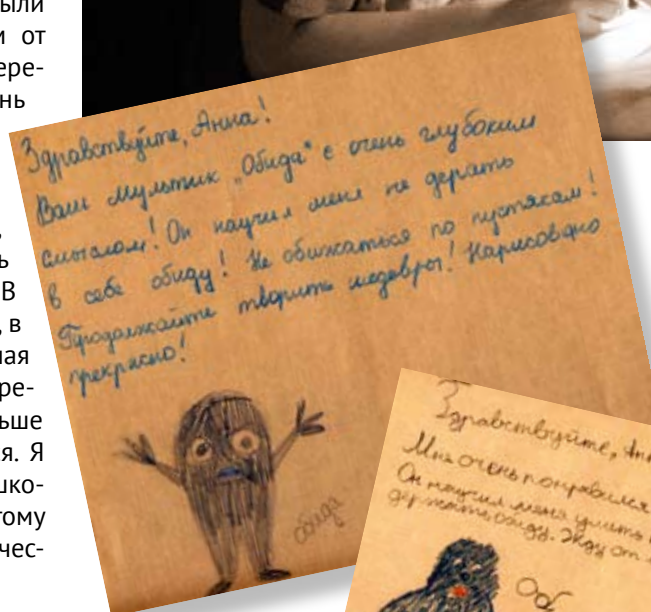 ыли
и от
ере-
нь
ь
В
, в
ная
ре-
ьше
я. Я
шко-
тому
чес-
Здравствуйте, Анна!
Ваш мультик „Обида“ с очень глубоким
смыслом! Он научил меня не дерать
в себе обиду! Не обижаться по пустякам!
Продолжайте творить шедевры! Нарисовано
прекрасно!
обида
Здравствуйте, Анн
Мне очень понравился
Он научил меня
держать обиду. Жду от